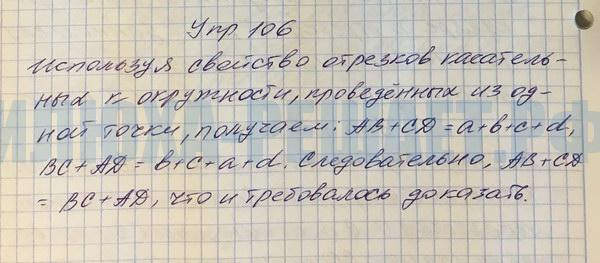 Упр 106
Используя свойство отрезков касатель-
ных к окружности, проведённых из од-
ной точки, получаем: AB+CD=a+b+c+d,
BC+AD=b+c+a+d. Следовательно, AB+CD
=BC+AD, что и требовалось доказать.